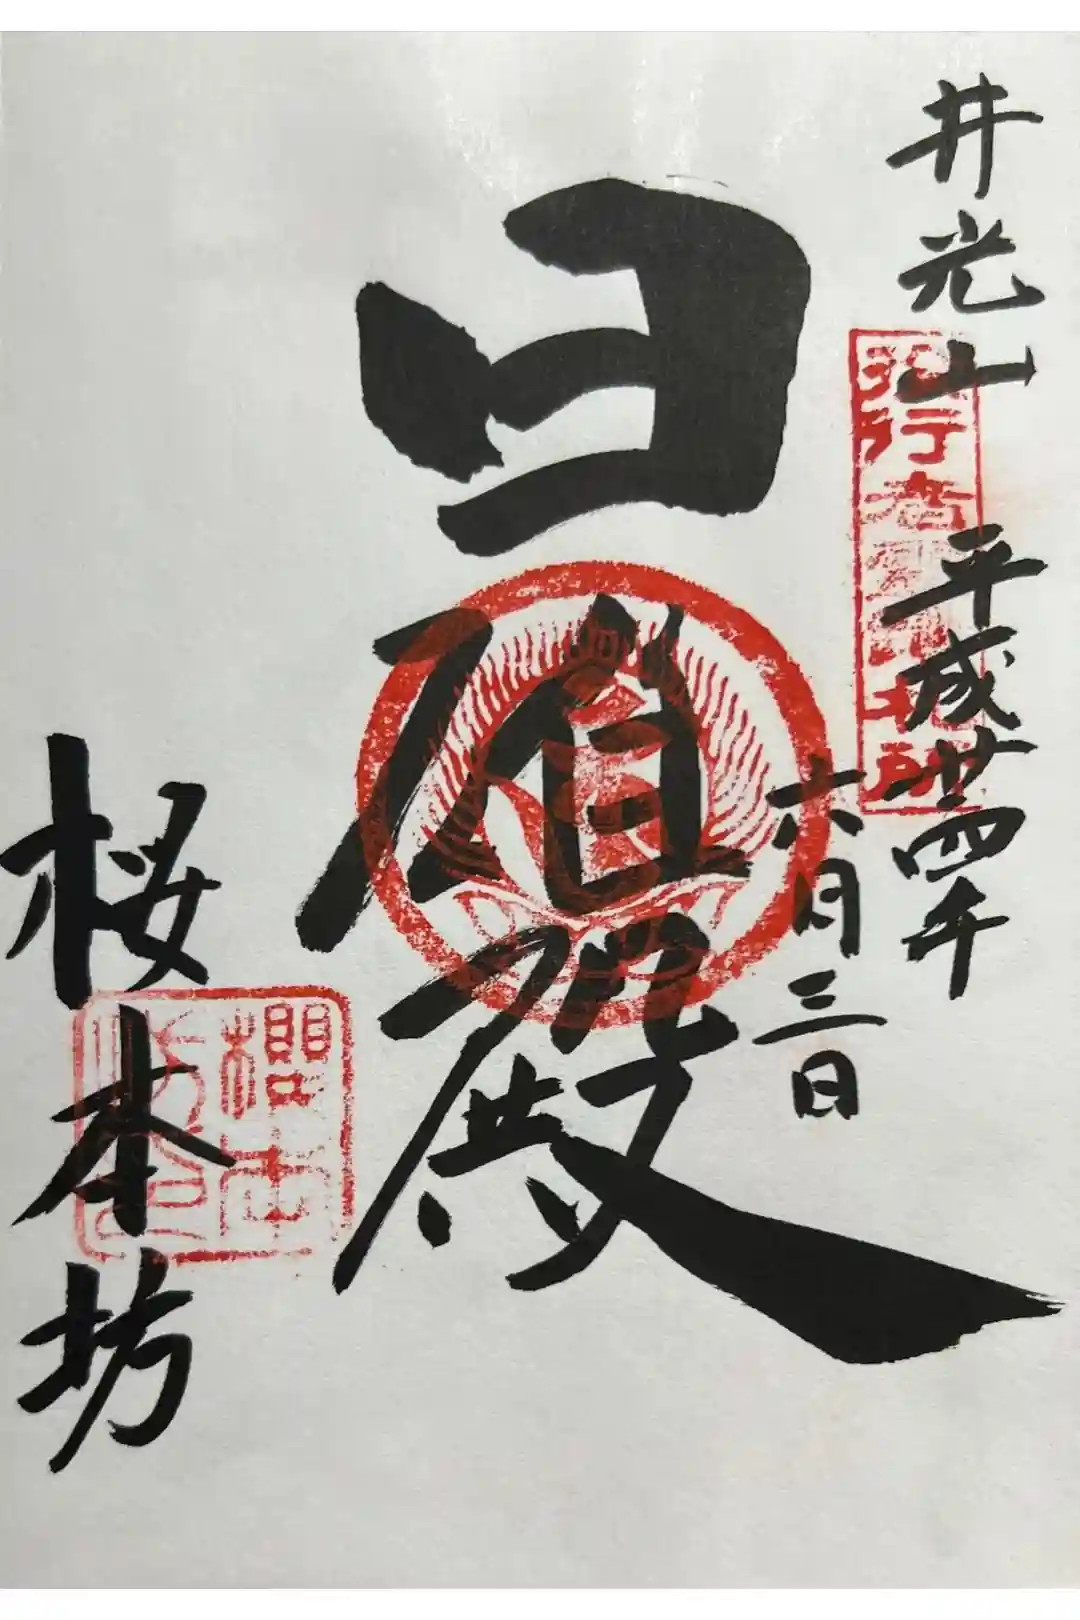 井光山
平成廿四年
六月三日
役行者霊蹟札所
日雄殿
桜本坊
櫻本